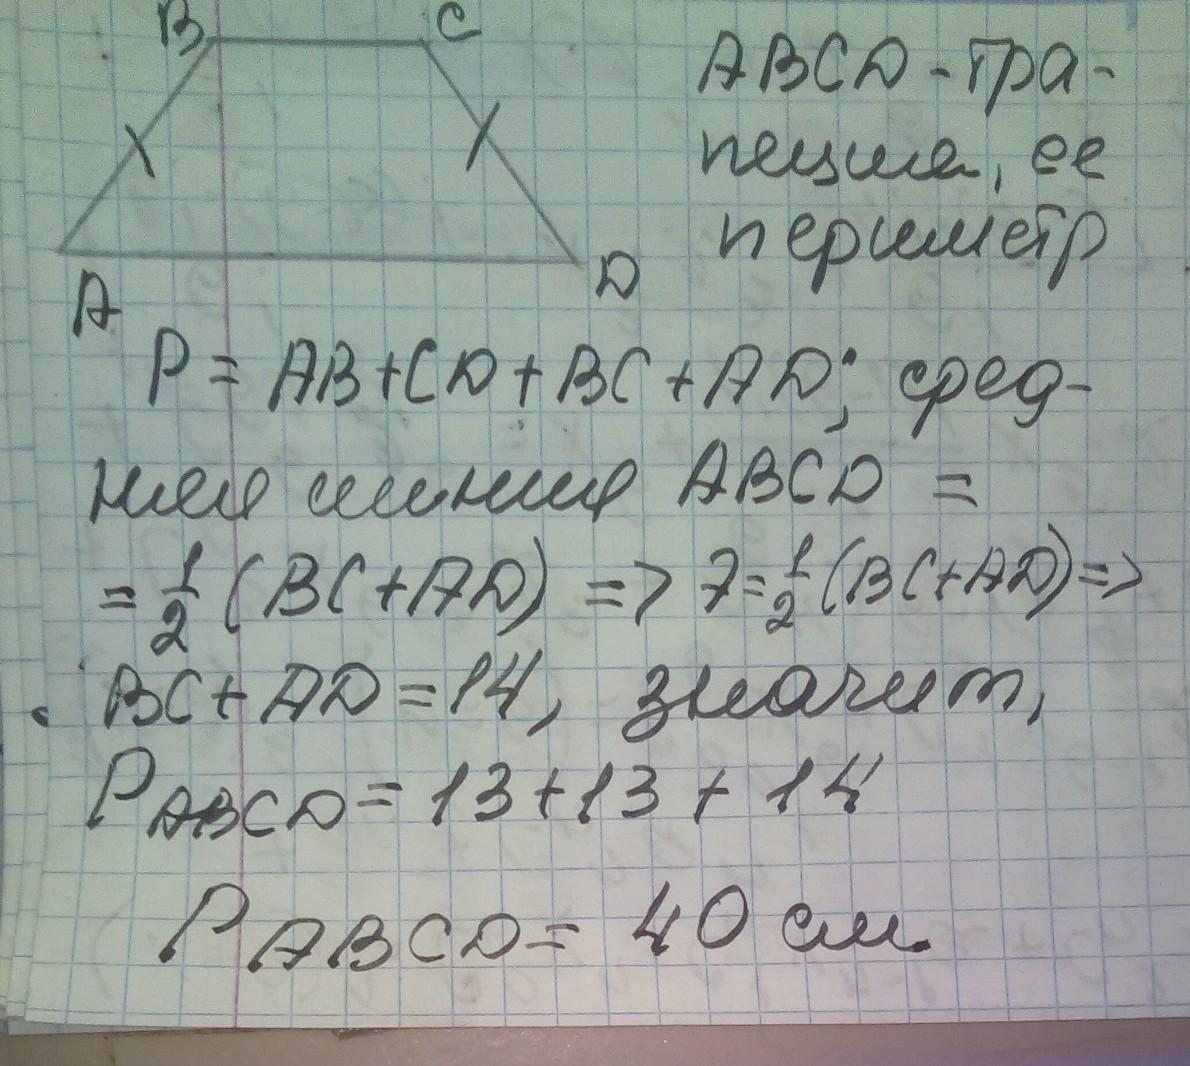 B C
ABCD - тра-
пеция, ее
периметр
A D
P = AB+CD+BC+AD; сред-
няя линия ABCD =
= 1/2 (BC+AD) => 7= 1/2 (BC+AD) =>
BC+AD=14, значит,
P ABCD = 13+13+14
P ABCD = 40 см.